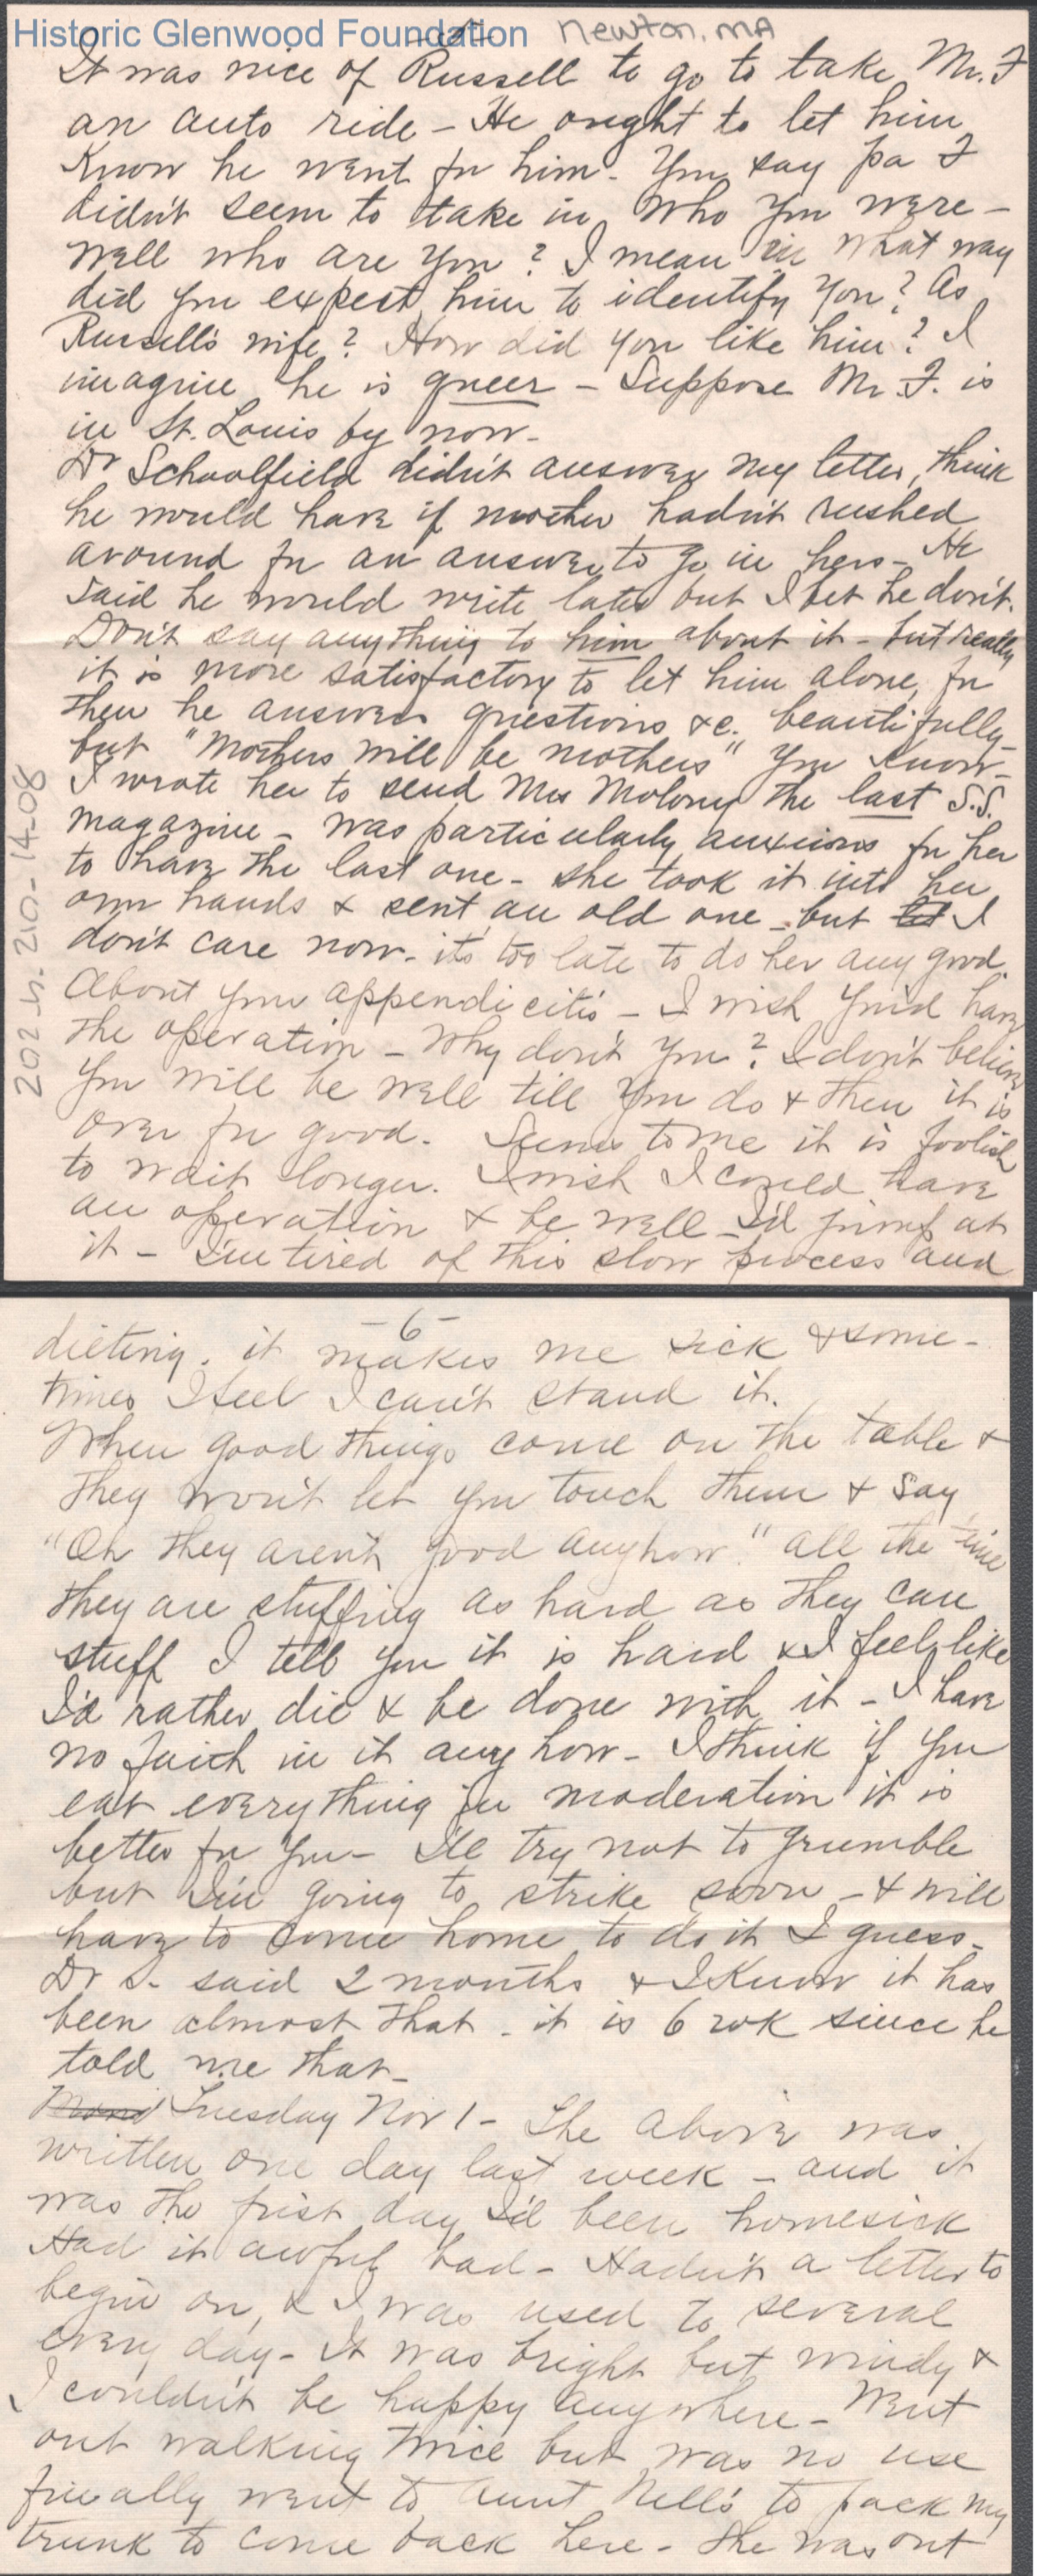 Historic Glenwood Foundation
-5- Newton, MA
It was nice of Russell to go to take Mr. F
an auto ride - He ought to let him
know he went for him. You say pa F
didn't seem to take in who you were -
Well who are you? I mean in what way
did you expect him to identify you? As
Russell's wife? How did you like him? I
imagine he is queer - Suppose Mr. F. is
in St. Louis by now -
Dr Schoolfield didn't answer my letter, think
he would have if mother hadn't rushed
around for an answer to go in hers - He
said he would write later but I bet he don't.
Don't say anything to him about it - but really
it is more satisfactory to let him alone, for
then he answers questions &c. beautifully -
but "Mothers will be mothers" you know -
I wrote her to send Mrs Molony the last S.S.
magazine - was particularly anxious for her
to have the last one - she took it into her
own hands & sent an old one - but I
don't care now - it's too late to do her any good.
About your appendicitis - I wish you'd have
the operation - Why don't you? I don't believe
you will be well till you do & then it is
over for good. Seems to me it is foolish
to wait longer. I wish I could have
an operation & be well - I'd jump at
it - I'm tired of this slow process and
202-h-210-14-08
-6-
dieting. it makes me sick & some-
times I feel I can't stand it.
When good things come on the table &
they won't let you touch them & say
"Oh they aren't good anyhow." all the time
they are stuffing as hard as they can
stuff I tell you it is hard & I feel like
I'd rather die & be done with it - I have
no faith in it any how - I think if you
eat everything in moderation it is
better for you - I'll try not to grumble
but I'm going to strike soon - & will
have to come home to do it I guess -
Dr S. said 2 months & I know it has
been almost that - it is 6 wk since he
told me that -
Mond Tuesday Nov 1 - The above was
written one day last week - and it
was the first day I'd been homesick
Had it awful bad - Hadn't a letter to
begin on, & I was used to several
every day - It was bright but windy &
I couldn't be happy anywhere - Went
out walking twice but was no use
finally went to Aunt Nell's to pack my
trunk to come back here - She was out